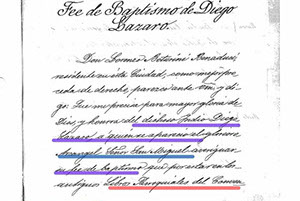 Fee de Baptismo de Diego
Lazaro.
Don Lorenzo Botturini Benaduci,
residente en esta Ciudad, como mejor pro-
ceda de derecho, parezco ante Vm y di-
go: Que me precisa para mayor gloria de
Dios y honrra del dichoso Indio Diego
Lazaro a quien se apareció el glorioso
Arcangel Señor San Miguel averiguar
su fee de bautismo que por estar en los
antiguos Libros Parroquiales del Conven-